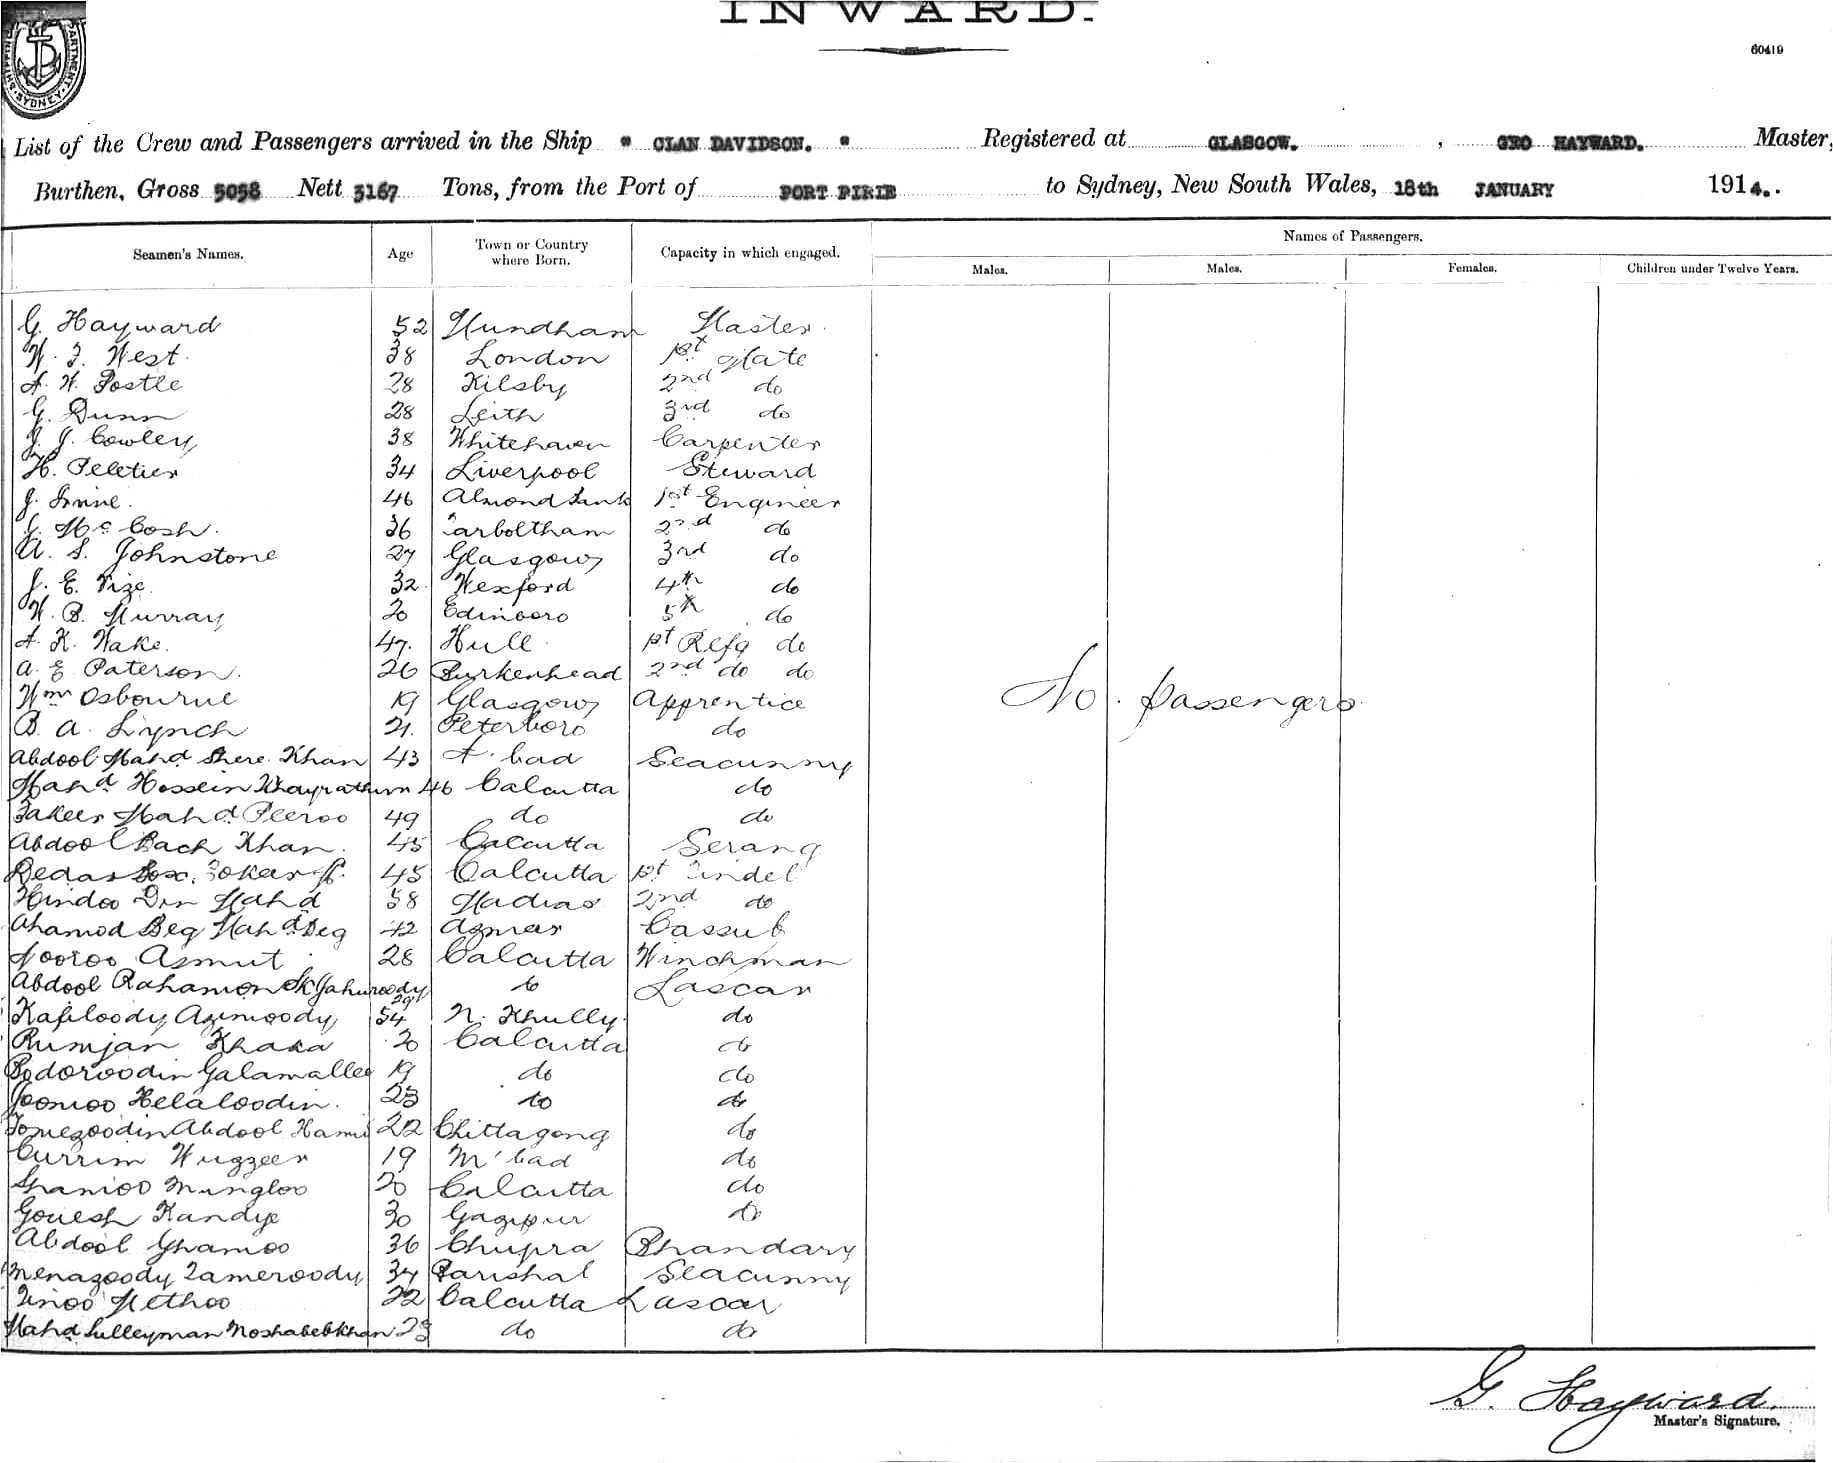 INWARD.
60419
SYDNEY
List of the Crew and Passengers arrived in the Ship " CLAN DAVIDSON. " Registered at GLASGOW. , GEO HAYWARD. Master,
Burthen, Gross 5058 Nett 3167 Tons, from the Port of PORT PIRIE to Sydney, New South Wales, 18th JANUARY 1914.
Seamen's Names. Age Town or Country where Born. Capacity in which engaged. Names of Passengers.
Males. Males. Females. Children under Twelve Years.
G. Hayward 52 Mundham Master
W. J. West. 38 London 1st Mate
A. W. Postle 28 Kilsby 2nd do
G. Dunn 28 Leith 3rd do
J. J. Cowley 38 Whitehaven Carpenter
H. Peletier 34 Liverpool Steward
J. 46 Almond bank 1st Engineer
J. McCosh. 36 2nd do
A. S. Johnstone 27 Glasgow 3rd do
J. E. Vize. 32 Wexford 4th do
W. B. Murray 20 Edinboro 5th do
A. K. Wake. 47. Hull 1st Refg do
A. E Paterson. 26 Birkenhead 2nd do do
Wm Osbourne 19 Glasgow Apprentice
B. A. Lynch 21. Peterboro do
Abdool Mahd Shere Khan 43 A. bad Seacunny
Mahd Hossein 46 Calcutta do
Fakeer Mahd Peeroo 49 do do
Abdool Bach Khan. 45 Calcutta Serang
45 Calcutta 1st Tindel
Hindoo Din Mahd 58 Madras 2nd do
Ahamod Beg Mahd Beg 42 Azmer Cassub
Nooroo Asmut 28 Calcutta Winchman
Abdool Rahamon Sk Jahuroody 29 do Lascar
Kafiloody Azimoody 54 N. Khully do
Rumjan Khaka 20 Calcutta do
Bodoroodin Galamallee 19 do do
Joomoo Helaloodin. 23 do do
Abdool Hamid 22 Chittagong do
Currim Wuzzeer 19 M'bad do
Shamoo Mungloo 20 Calcutta do
Gouesh Kandye 30 Gazipur do
Abdool Ghamoo 36 Chupra Bhandary
Menazoody Zameroody 34 Barishal Seacunny
Tinoo Methoo 22 Calcutta Lascar
Mahd Sulleyman Moshabebkhan 23 do do
No passengers
G. Hayward.
Master's Signature.